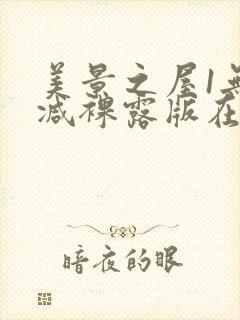 美景之屋1无
减裸露版在
暗夜的眼